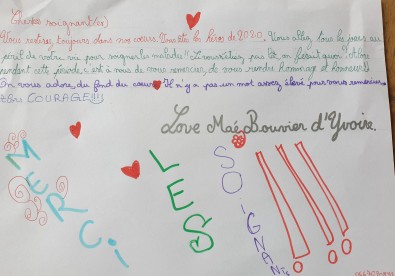 Chères soignant(es)
Vous resterez toujours dans nos cœurs. Vous êtes le héros de 2020. Vous allez tous les jours au
péril de votre vie pour soigner les malades!! Si vous n'étiez pas là, on ferait quoi? Alors
pendant cette période, c'est à nous de vous remercier, de vous rendre hommage et honneur!
On vous adore du fond du cœur. Il n'y a pas un mot assez élevé pour vous remercier.
Alors COURAGE!!!
Love Maé Bouvier d'Yvoire.
MERCI
LES
SOIGNANTS
!!!